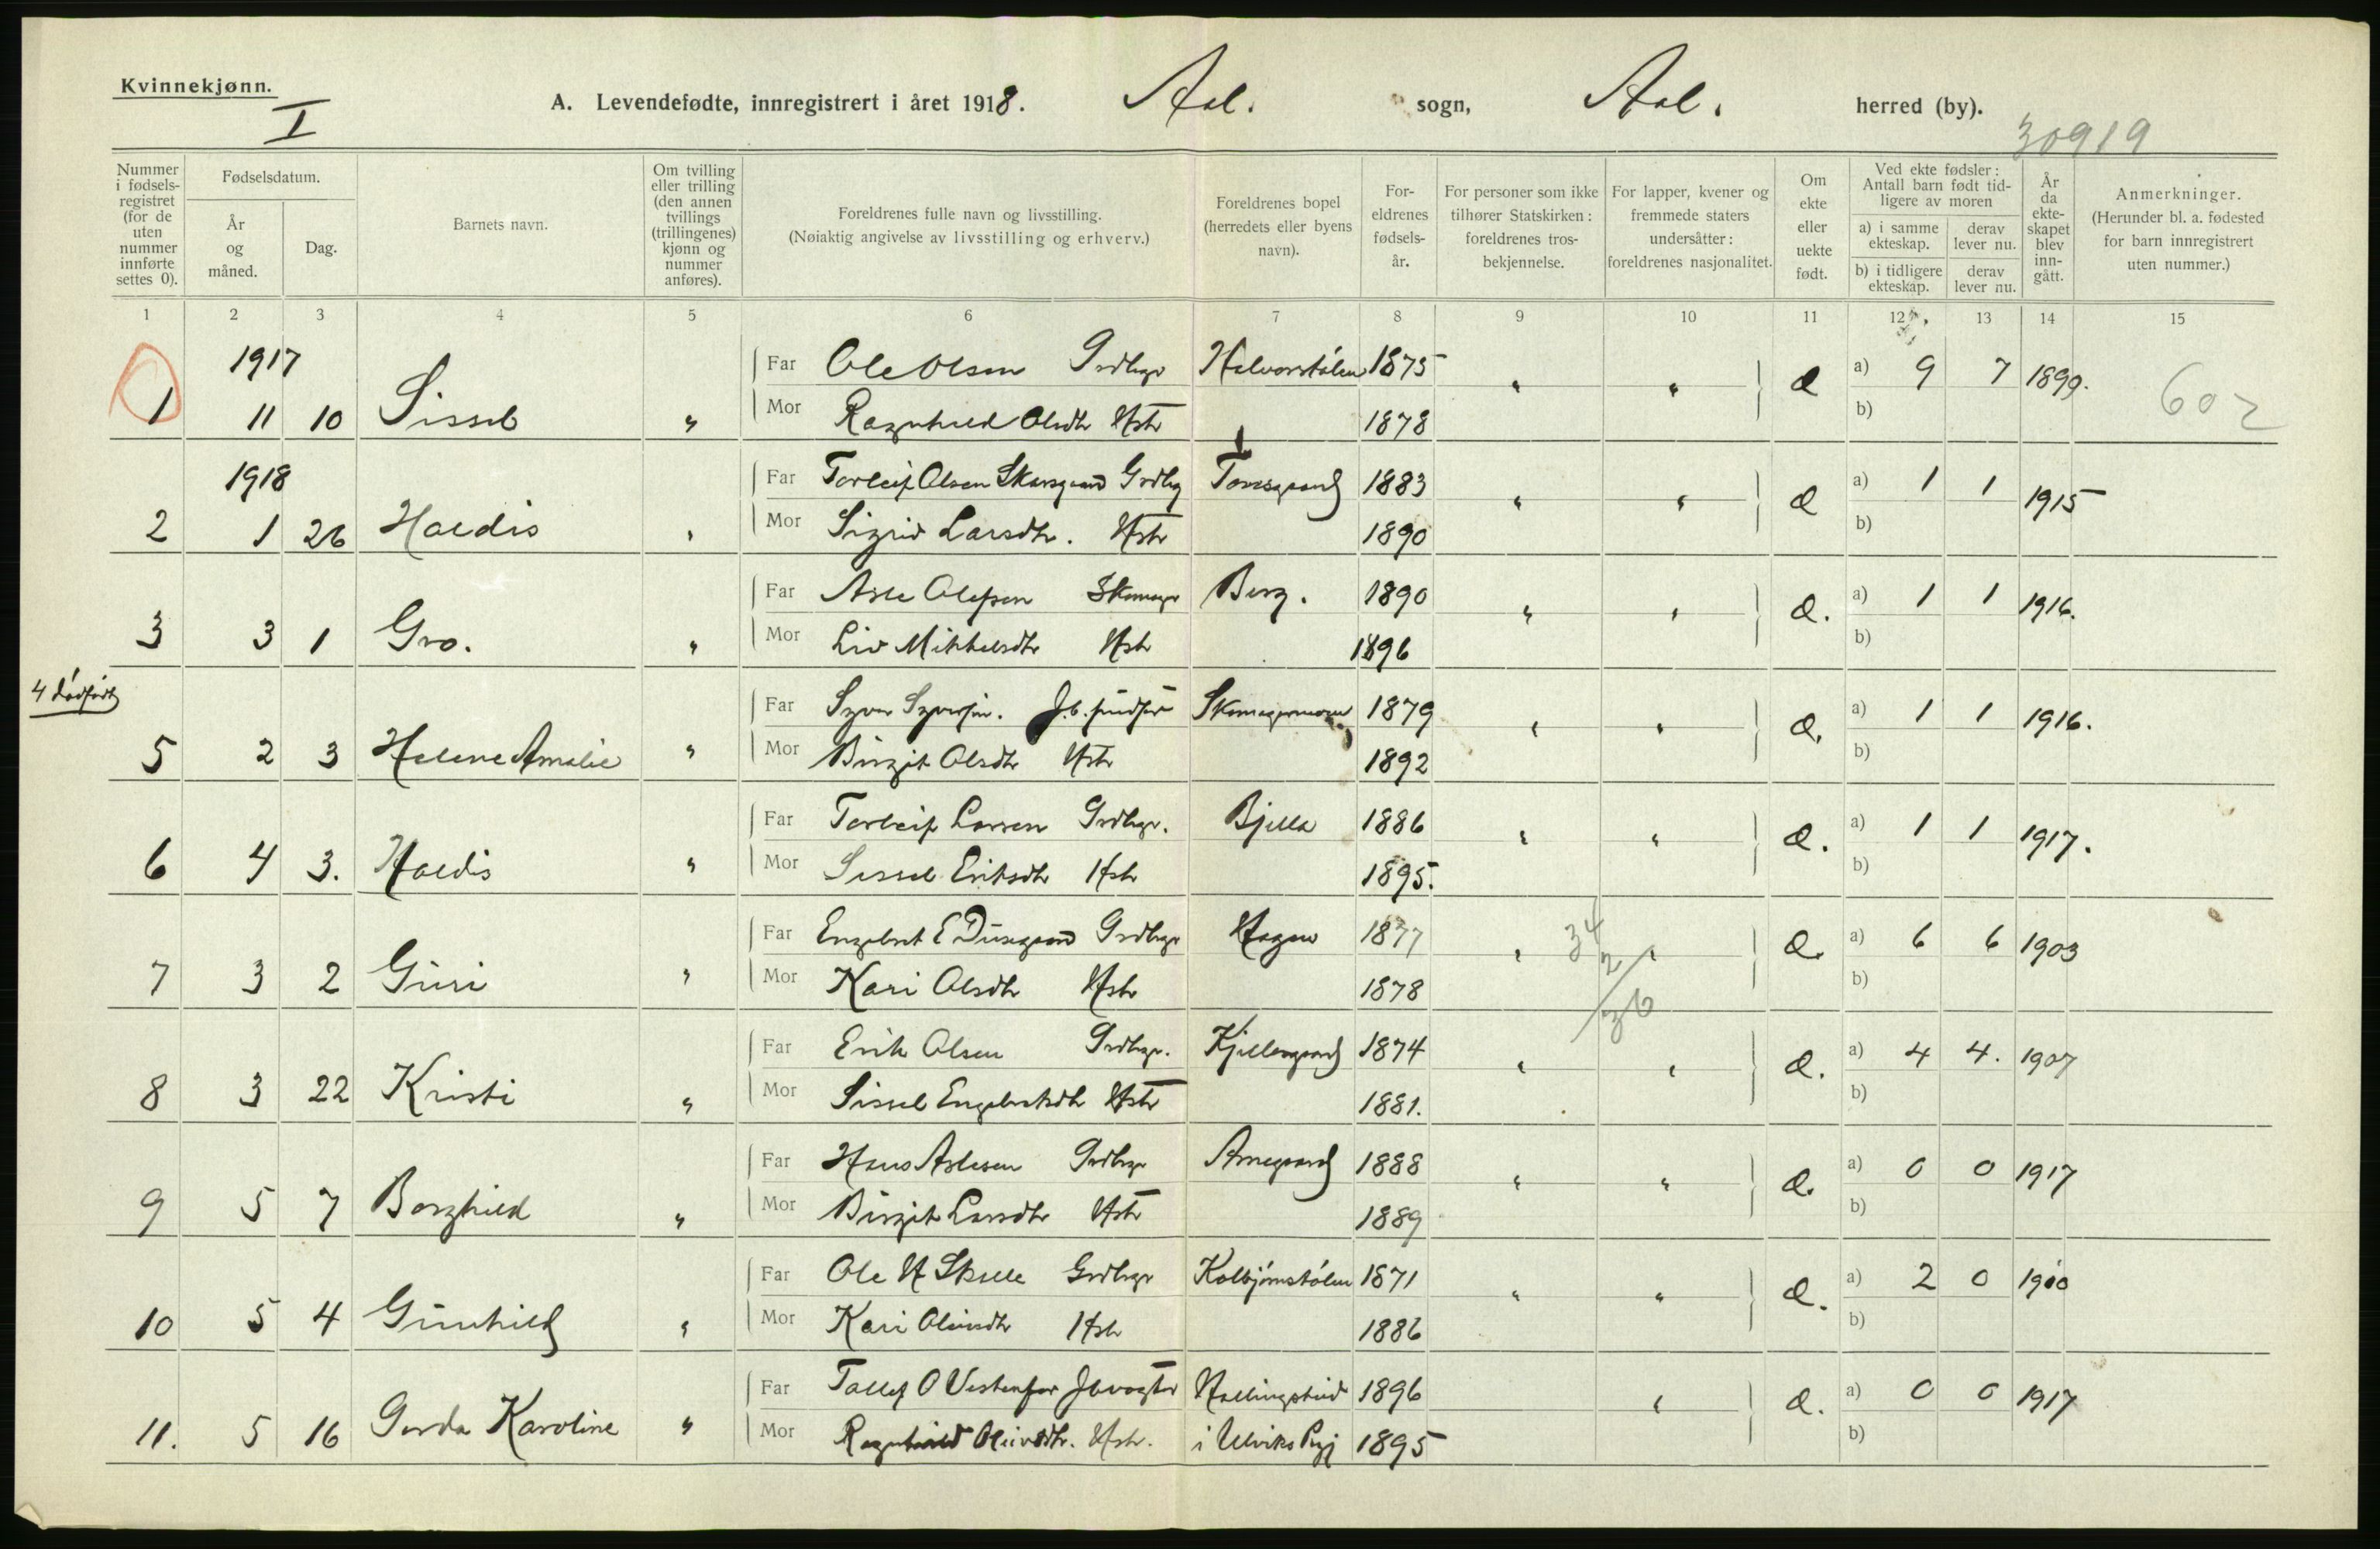 Kvinnekjønn.
I
A. Levendefødte, innregistrert i året 1918. Aal. sogn, Aal. herred (by).
30919
Nummer i fødselsregistret (for de uten nummer innførte settes 0).
Fødselsdatum.
År og måned.
Dag.
Barnets navn.
Om tvilling eller trilling (den annen tvillings (trillingenes) kjønn og nummer anføres).
Foreldrenes fulle navn og livsstilling.
(Nøiaktig angivelse av livsstilling og erhverv.)
Foreldrenes bopel (herredets eller byens navn).
Foreldrenes fødselsår.
For personer som ikke tilhører Statskirken: foreldrenes trosbekjennelse.
For lapper, kvener og fremmede staters undersåtter: foreldrenes nasjonalitet.
Om ekte eller uekte født.
Ved ekte fødsler: Antall barn født tidligere av moren
a) i samme ekteskap.
derav lever nu.
b) i tidligere ekteskap.
derav lever nu.
År da ekteskapet blev inngått.
Anmerkninger.
(Herunder bl. a. fødested for barn innregistrert uten nummer.)
1 2 3 4 5 6 7 8 9 10 11 12 13 14 15
1917
Far Ole Olsen Grdbrgr Halvorstølen 1875 a) 9 7 1899.
1 11 10 Sissel " Mor Ragnhild Olsdtr Hstr 1878 " " Æ b) 602
1918
Far Torleif Olsen Skarsgaard Grdbrg 1883 a) 1 1 1915
2 1 26 Haldis " Mor Sigrid Larsdtr. Hstr 1890 " " Æ b)
Far Asle Olefsen Skomager Berg. 1890 a) 1 1 1916.
3 3 1 Gro. " Mor Liv Mikkelsdtr Hstr 1896 " " Æ. b)
4 dødfødt
Far 1879 a) 1 1 1916.
5 2 3 Helene Amalie " Mor Birgit Olsdtr Hstr 1892 " " Æ. b)
Far Torleif Larsen Grdbrgr. Bjella 1886 a) 1 1 1917.
6 4 3. Haldis " Mor Sissel Eriksdtr Hstr 1895. " " Æ. b)
Far Engebret E Grdbrgr Hagen 1877 34 a) 6 6 1903
7 3 2 Guri " Mor Kari Olsdtr Hstr 1878 " 2 " Æ. b)
36
Far Erik Olsen Grdbrgr. 1874 a) 4 4. 1907
8 3 22 Kristi " Mor Sissel Engebretsdtr Hstr 1881. " " Æ. b)
Far Hans Aslesen Grdbrgr Arnegaard 1888 a) 0 0 1917
9 5 7 Borghild " Mor Birgit Larsdtr Hstr 1889 " " Æ. b)
Far Ole H Skulle Grdbrgr Kolbjørnstølen 1871 a) 2 0 1910
10 5 4 Gunhild " Mor Kari Hstr 1886 " " Æ. b)
Far Tollef O Vestenfor Jbvogter Hallingskeid 1896 a) 0 0 1917
11. 5 16 Gerda Karoline " Mor Ragnhild Hstr. i Ulviks Prgj 1895 " Æ. b)